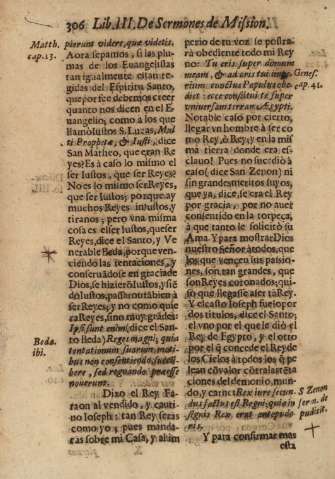 306 Lib. III. De Sermones de Mission,
Matth.
cap. 13.
pierunt videre, quæ videtis.
Aora sepamos, si las plu-
mas de los Euangelistas
tan igualmente estan re-
gidas del Espiritu Santo,
que por fee debemos creer
quanto nos dicen en el E-
uangelio; como a los que
llamò Iustos S. Lucas, Mul
ti Prophetæ, & Iusti, dice
San Matheo, que eran Re
yes? Es à caso lo mismo el
ser Iustos, que ser Reyes?
No es lo mismo ser Reyes,
que ser Iustos; porque ay
muchos Reyes injustos, y
tiranos; pero vna misma
cosa es el ser Iustos, que ser
Reyes, dice el Santo, y Ve
nerable Beda, porque ven-
ciendo las tentaciones, y
conseruãdose en gracia de
Dios, se hizierõ Iustos, y siẽ
do Iustos, passaron tãbien à
ser Reyes; y no como quie
ra Reyes, sino muy grãdes:
Beda.
ibi.
Ipsi sunt enim (dice el San-
to Beda) Reges magni; quia
tentationum suarum moti-
bus non consentiendo, succũ
bere, sed regendo præesse
nouerunt.
Dixo el Rey Fa-
raon al vendido, y cauti-
no Ioseph: tan Rey seràs
como yo; pues manda-
ràs sobre mi Casa, y al im
perio de tu voz se postra-
rà obediente todo mi Rey
no: Tu eris super domum
meam, & ad oris tui impe-
rium cunctus Populus obe-
diet: ecce constitui te super
vniuersam terram Ægypti.
Genes.
cap. 41.
Notable caso por cierto,
llegar vn hombre à ser co
mo Rey, ò Rey; y en la mis
ma tierra donde era es-
clauo! Pues no sucediò à
caso (dice San Zenon) ni
sin grandes meritos suyos,
que ya, dice, se era el Rey
por gracia, por no auer
consentido en la torpeza,
à que tanto le solicitò su
Ama. Y para mostrar Dios
nuestro Señor à todos, que
los que vencen sus passio-
nes, son tan grandes, que
son Reyes coronados; qui-
so que llegasse à ser tã Rey.
Y el casto Ioseph fue lo por
dos titulos, dice el Santo;
el vno por el que le diò el
Rey de Egypto, y el otro
por el q̃ concede el Rey de
los Cielos à todos los q̃ pe
lean cõ valor contra las tẽta
ciones del demonio, mun-
do, y carne: Rex iure secun-
dus factus est Regni; quia in
signis Rex erat antepudo-
ris.
S. Zenon
in serm. de
pudicit.
Y para confirmar mas
esta